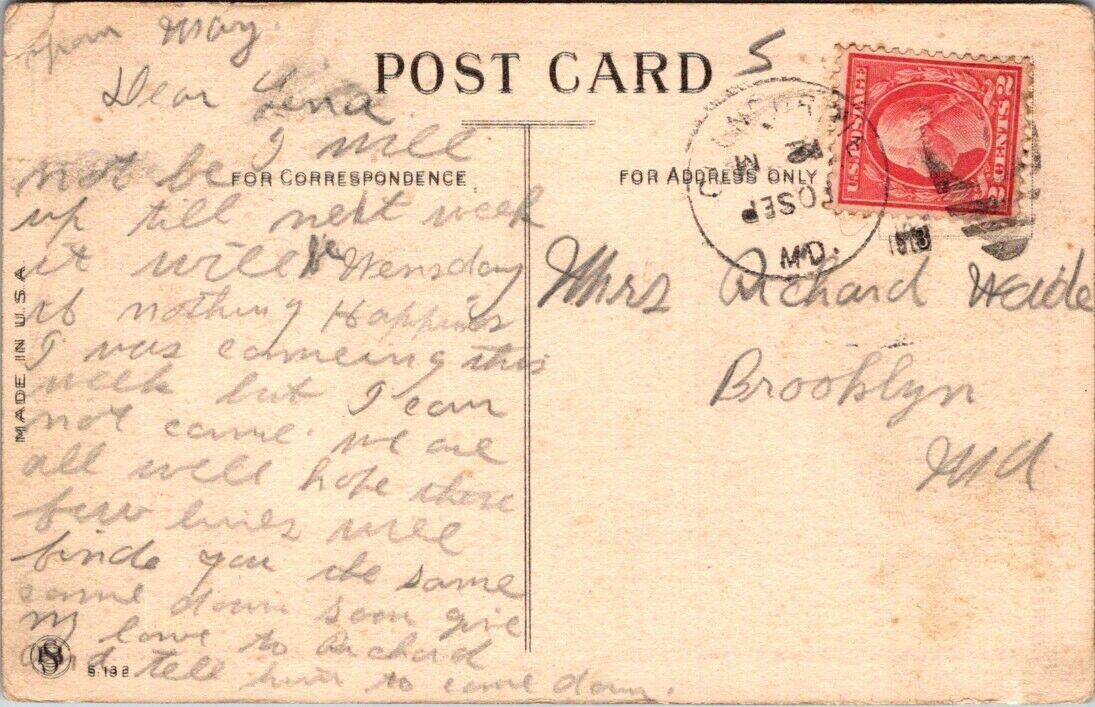 from May.
POST CARD
5
Dear Lena
I will
not be
up till next week
it will be Wensday
if nothing Happins
I was comeing this
week but I can
not come. we are
all well hope these
few lines will
finde you the same
come down soon give
my love to Richard
and tell him to come down.
FOR CORRESPONDENCE
FOR ADDRESS ONLY
SEP
M
MD.
U.S. POSTAGE
2 CENTS 2
Mrs Richard Weide
Brooklyn
Md
MADE IN U.S.A.
S
S.132